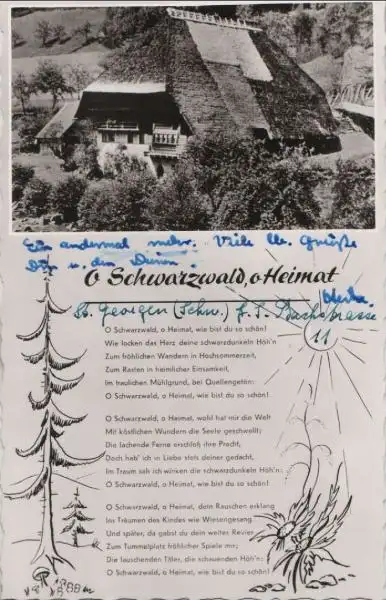 Ein andermal mehr. Viele lb. Grüße
Dir u. den Deinen
O Schwarzwald, o Heimat
St. Georgen (Schw.) J. S. Bachstrasse
11
O Schwarzwald, o Heimat, wie bist du so schön!
Wie locken das Herz deine schwarzdunkeln Höh'n
Zum fröhlichen Wandern in Hochsommerzeit,
Zum Rasten in heimlicher Einsamkeit,
Im traulichen Mühlgrund, bei Quellengetön:
O Schwarzwald, o Heimat, wie bist du so schön!
O Schwarzwald, o Heimat, wohl hat mir die Welt
Mit köstlichen Wundern die Seele geschwellt;
Die lachende Ferne erschloß ihre Pracht,
Doch hab' ich in Liebe stets deiner gedacht,
Im Traum sah ich winken die schwarzdunkeln Höh'n:
O Schwarzwald, o Heimat, wie bist du so schön!
O Schwarzwald, o Heimat, dein Rauschen erklang
Im Träumen des Kindes wie Wiesengesang.
Und später, da gabst du dein weiter Revier
Zum Tummelplatz fröhlicher Spiele mir;
Die lauschenden Täler, die schauenden Höh'n:
O Schwarzwald, o Heimat, wie bist du so schön!